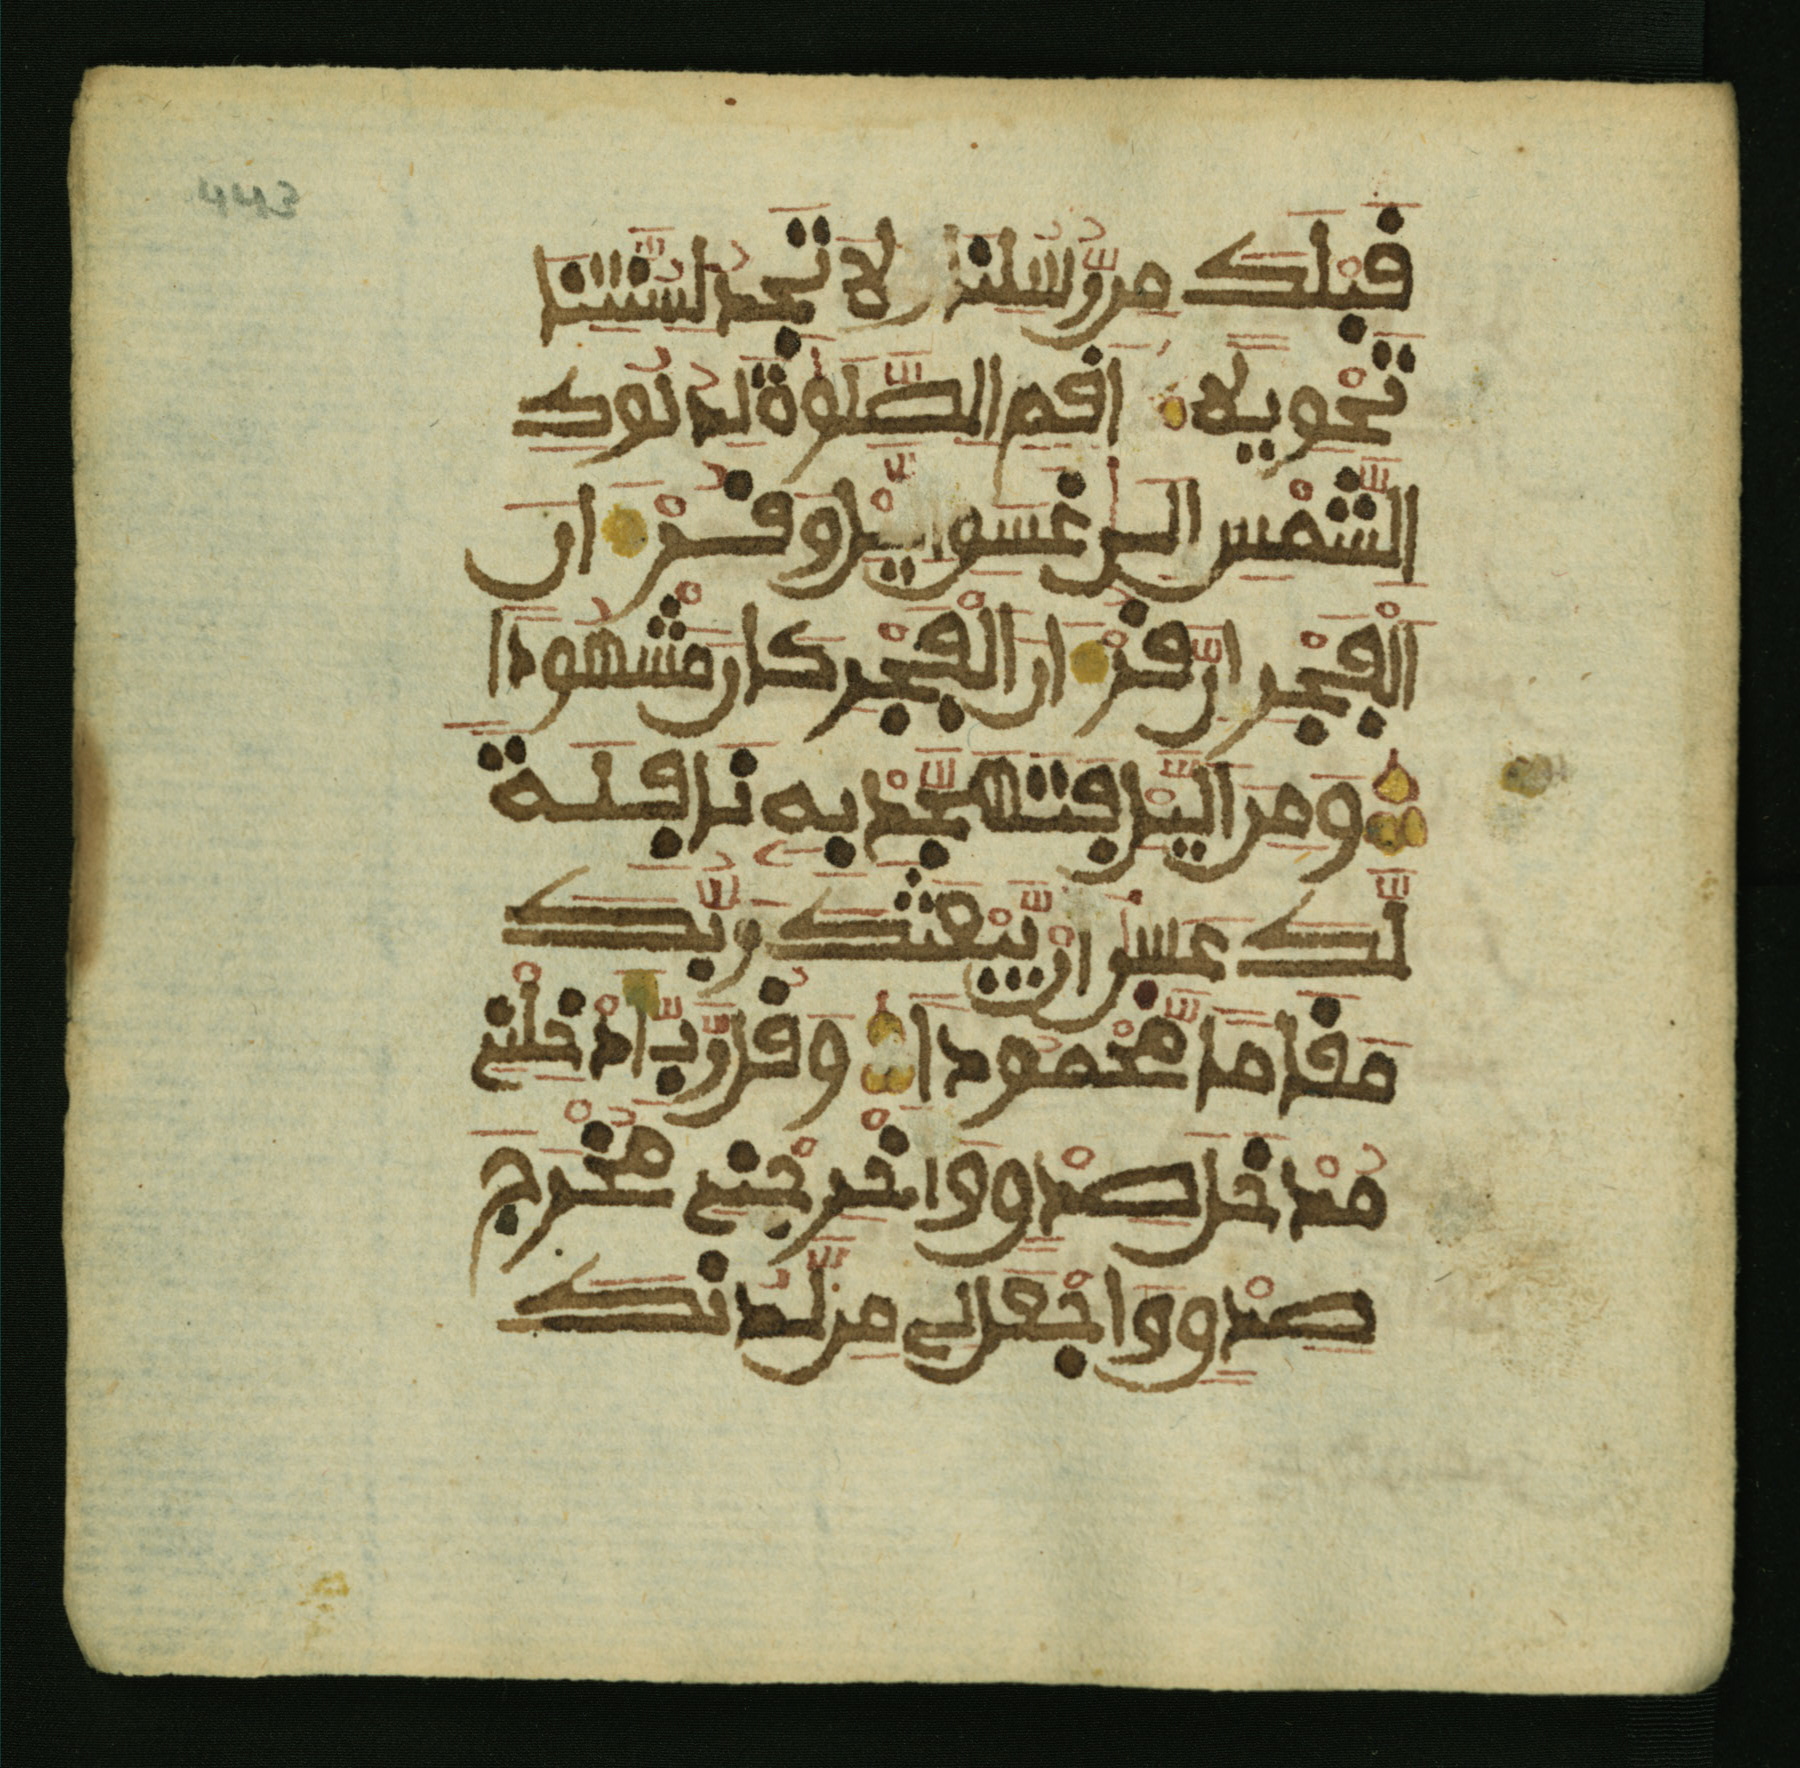 443
قبلك من رسلنا ولا تجد لسنتنا
تحويلا اقم الصلوة لدلوك
الشمس الى غسق اليل وقرءان
الفجر ان قرءان الفجر كان مشهودا
ومن اليل فتهجد به نافلة
لك عسى ان يبعثك ربك
مقاما محمودا وقل رب ادخلني
مدخل صدق واخرجني مخرج
صدق واجعل لي من لدنك